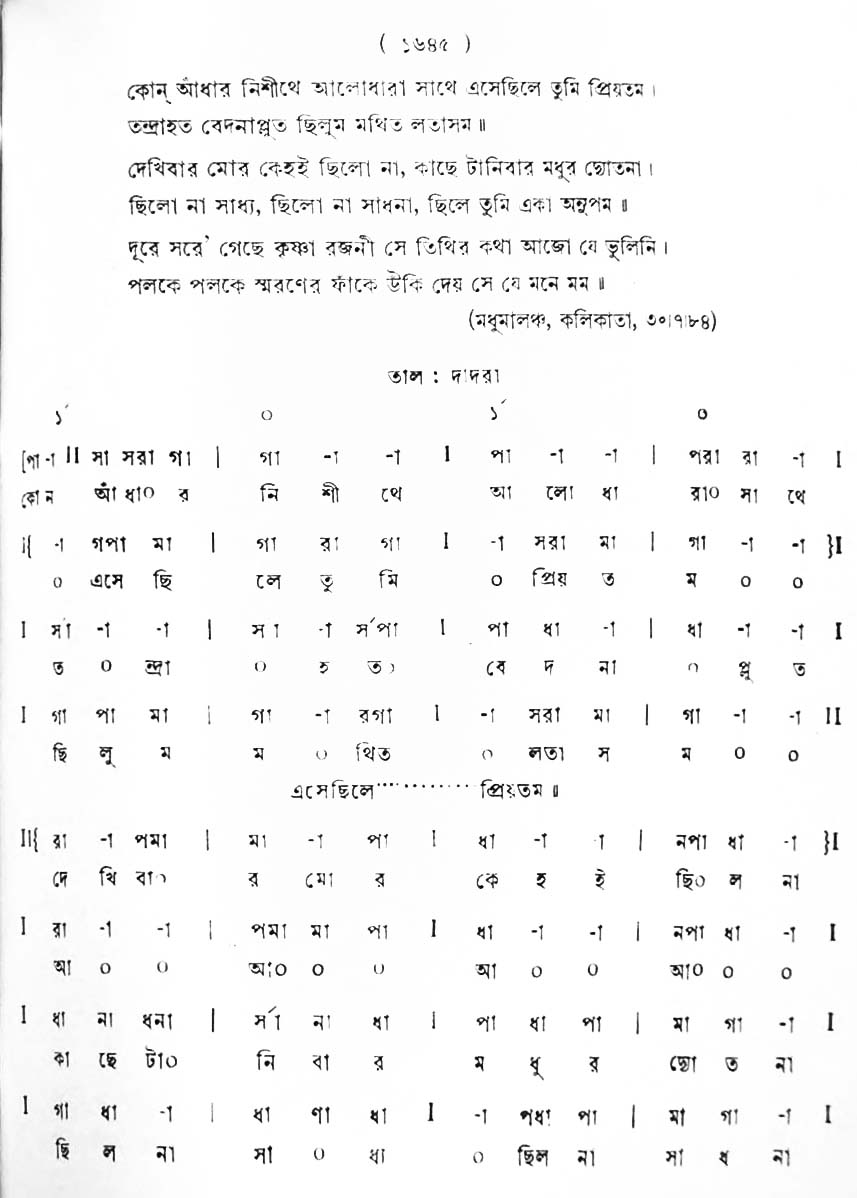 ( ১৬৪৫ )
কোন্ আঁধার নিশীথে আলোধারা সাথে এসেছিলে তুমি প্রিয়তম ।
তন্দ্রাহত বেদনাপ্লুত ছিলুম মথিত লতাসম ॥
দেখিবার মোর কেহই ছিলো না, কাছে টানিবার মধুর দ্যোতনা ।
ছিলো না সাধ্য, ছিলো না সাধনা, ছিলে তুমি একা অনুপম ॥
দূরে সরে’ গেছে কৃষ্ণা রজনী সে তিথির কথা আজো যে ভুলিনি ।
পলকে পলকে স্মরণের ফাঁকে উঁকি দেয় সে যে মনে মম ॥
(মধুমালঞ্চ, কলিকাতা, ৩০।৭।৮৪)
তাল : দাদরা
১́ ০ ১́ ০
[পা -া II সা সরা গা | গা -া -া I পা -া -া | পরা রা -া I
কোন আঁ ধা০ র নি শী থে আ লো ধা রা০ সা থে
{ -া গপা মা | গা রা গা I -া সরা মা | গা -া -া }I
০ এসে ছি লে তু মি ০ প্রিয় ত ম ০ ০
I র্সা -া -া | র্সা -া র্সপা I পা ধা -া | ধা -া -া I
ত ০ ন্দ্রা ০ হ ত০ বে দ না ০ প্লু ত
I গা পা মা | গা -া রগা I -া সরা মা | গা -া -া II
ছি লু ম ম ০ থিত ০ লতা স ম ০ ০
এসেছিলে············প্রিয়তম ॥
II{ রা -া পমা | মা -া পা I ধা -া -া | নপা ধা -া }I
দে খি বা০ র মো র কে হ ই ছি০ ল না
I রা -া -া | পমা মা পা I ধা -া -া | নপা ধা -া I
আ ০ ০ আ০ ০ ০ আ ০ ০ আ০ ০ ০
I ধা না ধনা | র্সা না ধা I পা ধা পা | মা গা -া I
কা ছে টা০ নি বা র ম ধু র দ্যো ত না
I গা ধা -া | ধা ণা ধা I -া পধা পা | মা গা -া I
ছি ল না সা ০ ধ্য ০ ছিল না সা ধ না